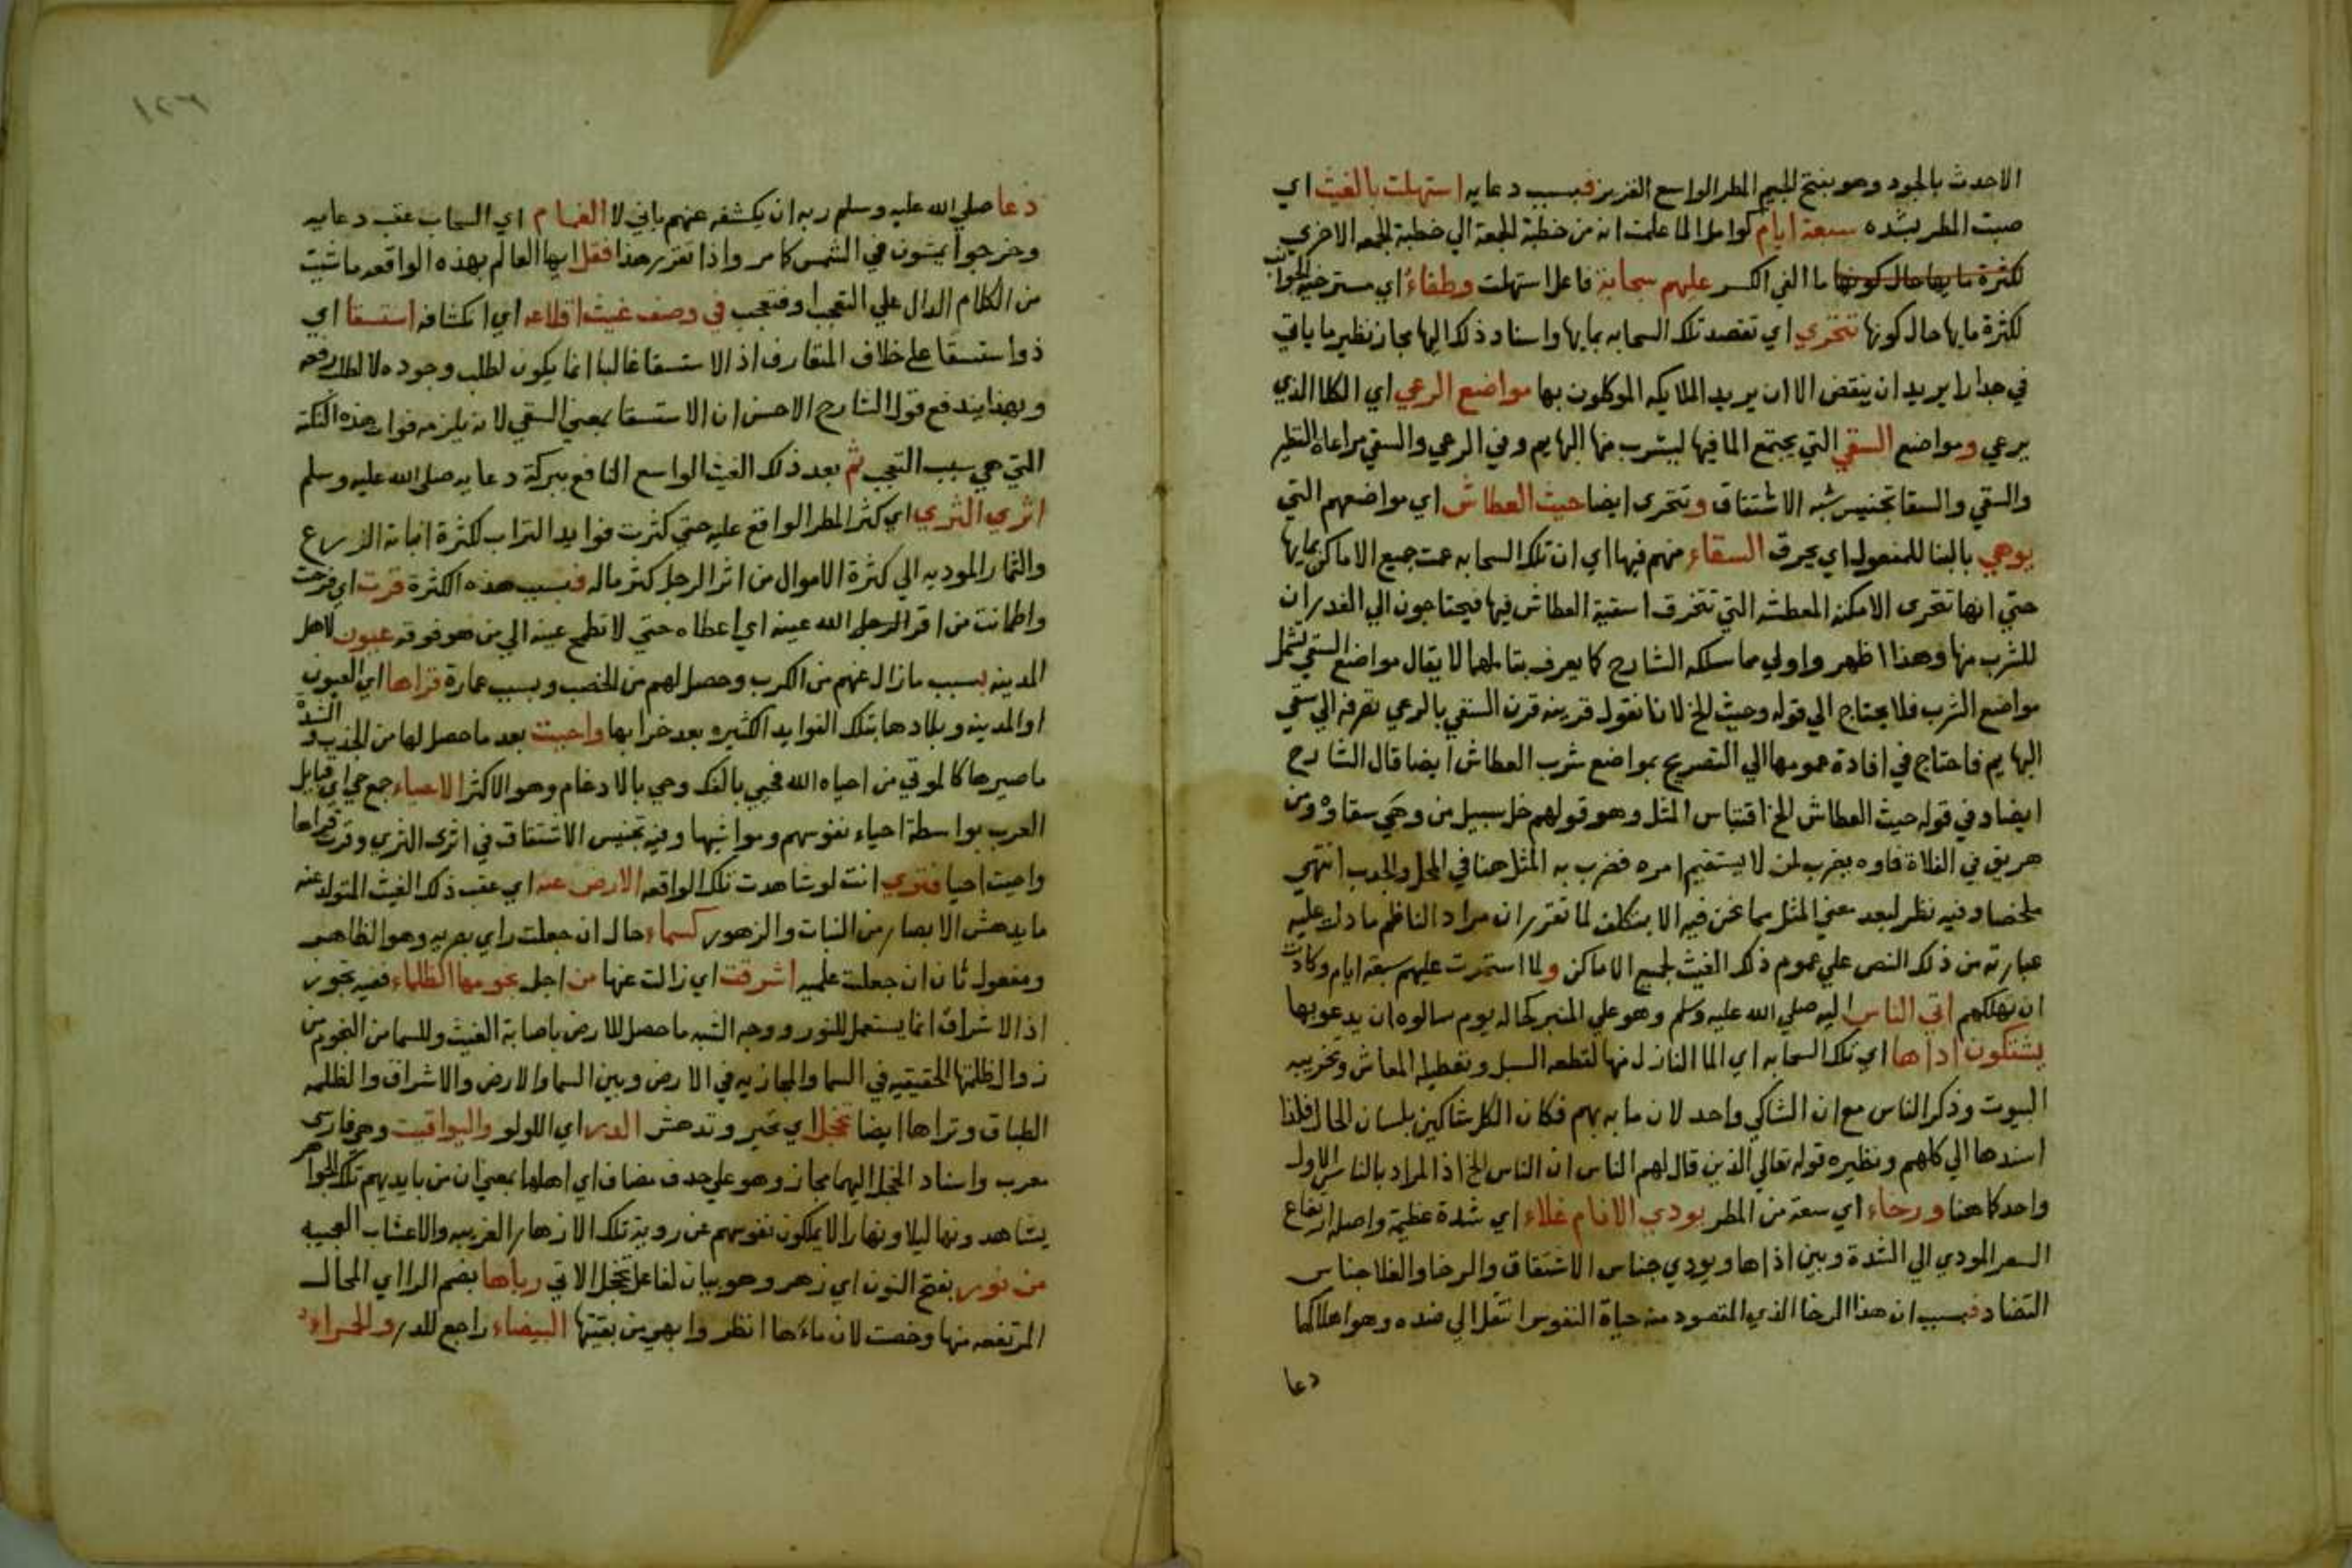 الاحدث بالجود وهو بفتح الجيم المطر الواسع الغزير فبسبب دعايه استهلت بالغيث اي
صبت المطر بشده سبعة ايام كوامل لما علمت انه من خطبة الجمعة الي خطبة الجمعه الاخري
لكثرة مابها حال كونها عليهم سحابة فاعل استهلت وطفاء اي مسترخية الجوانب
لكثرة مابها حال كونها تتحري اي تقصد تلك السحابه بمايها واسناد ذلك اليها مجاز نظير ما ياتي
في جدارا يريد ان ينقض الا ان يريد الملايكه الموكلون بها مواضع الرعي اي الكلا الذي
يرعي ومواضع السقي التي يجتمع الما فيها ليشرب منها البهايم وفي الرعي والسقي مراعاة النظير
والسقي والسقا تجنيس شبه الاشتقاق وتتحرى ايضا حيث العطاش اي مواضعهم التي
يوهي بالبنا للمفعول اي يخرق السقاء منهم فيها اي ان تلك السحابه عمت جميع الاماكن بمايها
حتي انها تتحرى الامكنه المعطشه التي تتخرق اسقية العطاش فيها فيحتاجون الي الغدران
للشرب منها وهذا اظهر واولي مما سلكه الشارح كما يعرف بتاملهما لا يقال مواضع السقي تشمل
مواضع الشرب فلا يحتاج الي قوله وحيث الخ لانا نقول قرينه قرن السقي بالرعي تصرفه الي سقي
البهايم فاحتاج في افادة عمومها الي التصريح بمواضع شرب العطاش ايضا قال الشارح
ايضا وفي قوله حيث العطاش الخ اقتباس المثل وهو قولهم خل سبيل من وهي سقاوه ومن
هريق في الفلاة ماوه يضرب لمن لا يستقيم امره فضرب به المثل هنا في المحل والجدب انتهي
ملخصا وفيه نظر لبعد معني المثل مما نحن فيه الا بتكلف لما تقرر ان مراد الناظم ما دل عليه
عبارته من ذلك النص علي عموم ذلك الغيث لجميع الاماكن ولما استمرت عليهم سبعة ايام وكادت
ان تهلكهم اتي الناس اليه صلي الله عليه وسلم وهو علي المنبر كحاله يوم سالوه ان يدعو بها
يشتكون اذاها اي تلك السحابه اي الما النازل منها لقطعه السبل وتعطيله المعاش وتخريبه
البيوت وذكر الناس مع ان الشاكي واحد لان ما به بهم فكان الكل شاكين بلسان الحال فلذا
اسندها الي كلهم ونظيره قوله تعالي الذين قال لهم الناس ان الناس الخ اذ المراد بالناس الاول
واحد كما هنا ورخاء اي سعة من المطر يوذي الانام غلاء اي شدة عظيمة واصله ارتفاع
السعر المودي الي الشدة وبين اذاها ويوذي جناس الاشتقاق والرخا والغلا جناس
التضاد فبسبب ان هذا الرخا الذي المقصود منه حياة النفوس انتقل الي ضده وهو اهلاكها
دعا
١٢٦
دعا صلي الله عليه وسلم ربه ان يكشفه عنهم باني لا الغمام اي السحاب عقب دعايه
وخرجوا يمشون في الشمس كما مر واذا تقرر هذا فقل ايها العالم بهذه الواقعه ما شيت
من الكلام الدال علي التعجب او فتعجب في وصف غيث اقلاعه اي انكشافه استسقا اي
ذو استسقا علي خلاف المتعارف اذ الاستسقا غالبا انما يكون لطلب وجوده لا لطلب رفعه
وبهذا يندفع قول الشارح الاحسن ان الاستسقا بمعني السقي لانه يلزمه فوات هذه النكتة
التي هي سبب التعجب ثم بعد ذلك الغيث الواسع النافع ببركة دعايه صلي الله عليه وسلم
اثري الثري اي كثر المطر الواقع عليه حتي كثرت فوايد التراب لكثرة انباته الزرع
والثمار الموديه الي كثرة الاموال من اثر الرجل كثر ماله فبسبب هذه الكثرة قرت اي فرحت
واطمانت من اقر الرجل الله عينه اي اعطاه حتي لا تطمح عينه الي من هو فوقه عيون لاهل
المدينه بسبب ما زال عنهم من الكرب وحصل لهم من الخصب وبسبب عمارة قراها اي العيون
او المدينه وبلادها بتلك الفوايد الكثيره بعد خرابها واحييت بعد ما حصل لها من الجذب والشدة
ما صيرها كالموتي من احياه الله فحيي بالفك وحي بالادغام وهو الاكثر الاحياء جمع حي اي قبايل
العرب بواسطة احياء نفوسهم ومواشيها وفيه تجنيس الاشتقاق في اثرى الثري وقرت قراها
واحييت احيا فتري انت لو شاهدت تلك الواقعه الارض عنه اي عقب ذلك الغيث المتولد عنه
ما يدهش الابصار من النبات والزهور كسماء حال ان جعلت راي بصريه وهو الظاهر
ومفعول ثان ان جعلت علميه اشرقت اي زالت عنها من اجل نجومها الظلماء ففيه تجوز
اذ الاشراق انما يستعمل للنور ووجه الشبه ما حصل للارض باصابة الغيث وللسما من النجوم من
زوال ظلمتها الحقيقيه في السما والمجازيه في الارض وبين السما والارض والاشراق والظلمه
الطباق وتراها ايضا تخجل اي تحير وتدهش الدر اي اللولو واليواقيت وهو فارسي
معرب واسناد الخجل اليهما مجاز وهو علي حذف مضاف اي اهلها بمعني ان من بايديهم تلك الجواهر
يشاهدونها ليلا ونهارا لا يملكون نفوسهم عن روية تلك الازهار الغريبه والاعشاب العجيبه
من نور بفتح النون اي زهر وهو بيان لفاعل تخجل الاتي رباها بضم الرا اي المحال
المرتفعه منها وخصت لان ماءها انظر وابهي من بقيتها البيضاء راجع للدر والحمراء